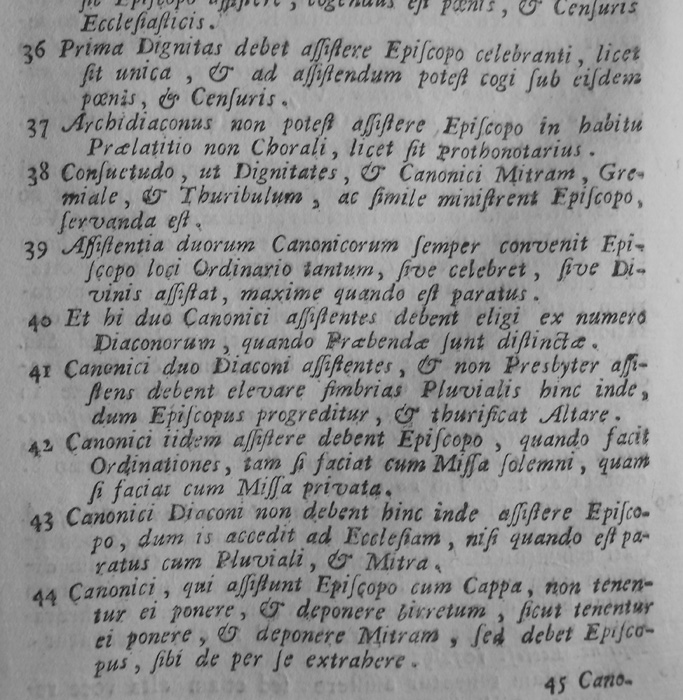 sit Episcopo assistere, cogendus est pœnis, & Censuris
Ecclesiasticis.
36 Prima Dignitas debet assistere Episcopo celebranti, licet
sit unica, & ad assistendum potest cogi sub eisdem
pœnis, & Censuris.
37 Archidiaconus non potest assistere Episcopo in habitu
Prælatitio non Chorali, licet sit Prothonotarius.
38 Consuetudo, ut Dignitates, & Canonici Mitram, Gre-
miale, & Thuribulum, ac simile ministrent Episcopo,
servanda est.
39 Assistentia duorum Canonicorum semper convenit Epi-
scopo loci Ordinario tantum, sive celebret, sive Di-
vinis assistat, maxime quando est paratus.
40 Et hi duo Canonici assistentes debent eligi ex numero
Diaconorum, quando Præbendæ sunt distinctæ.
41 Canonici duo Diaconi assistentes, & non Presbyter assi-
stens debent elevare fimbrias Pluvialis hinc inde,
dum Episcopus progreditur, & thurificat Altare.
42 Canonici iidem assistere debent Episcopo, quando facit
Ordinationes, tam si faciat cum Missa solemni, quam
si faciat cum Missa privata.
43 Canonici Diaconi non debent hinc inde assistere Episco-
po, dum is accedit ad Ecclesiam, nisi quando est pa-
ratus cum Pluviali, & Mitra.
44 Canonici, qui assistunt Episcopo cum Cappa, non tenen-
tur ei ponere, & deponere birretum, sicut tenentur
ei ponere, & deponere Mitram, sed debet Episco-
pus, sibi de per se extrahere.
45 Cano-